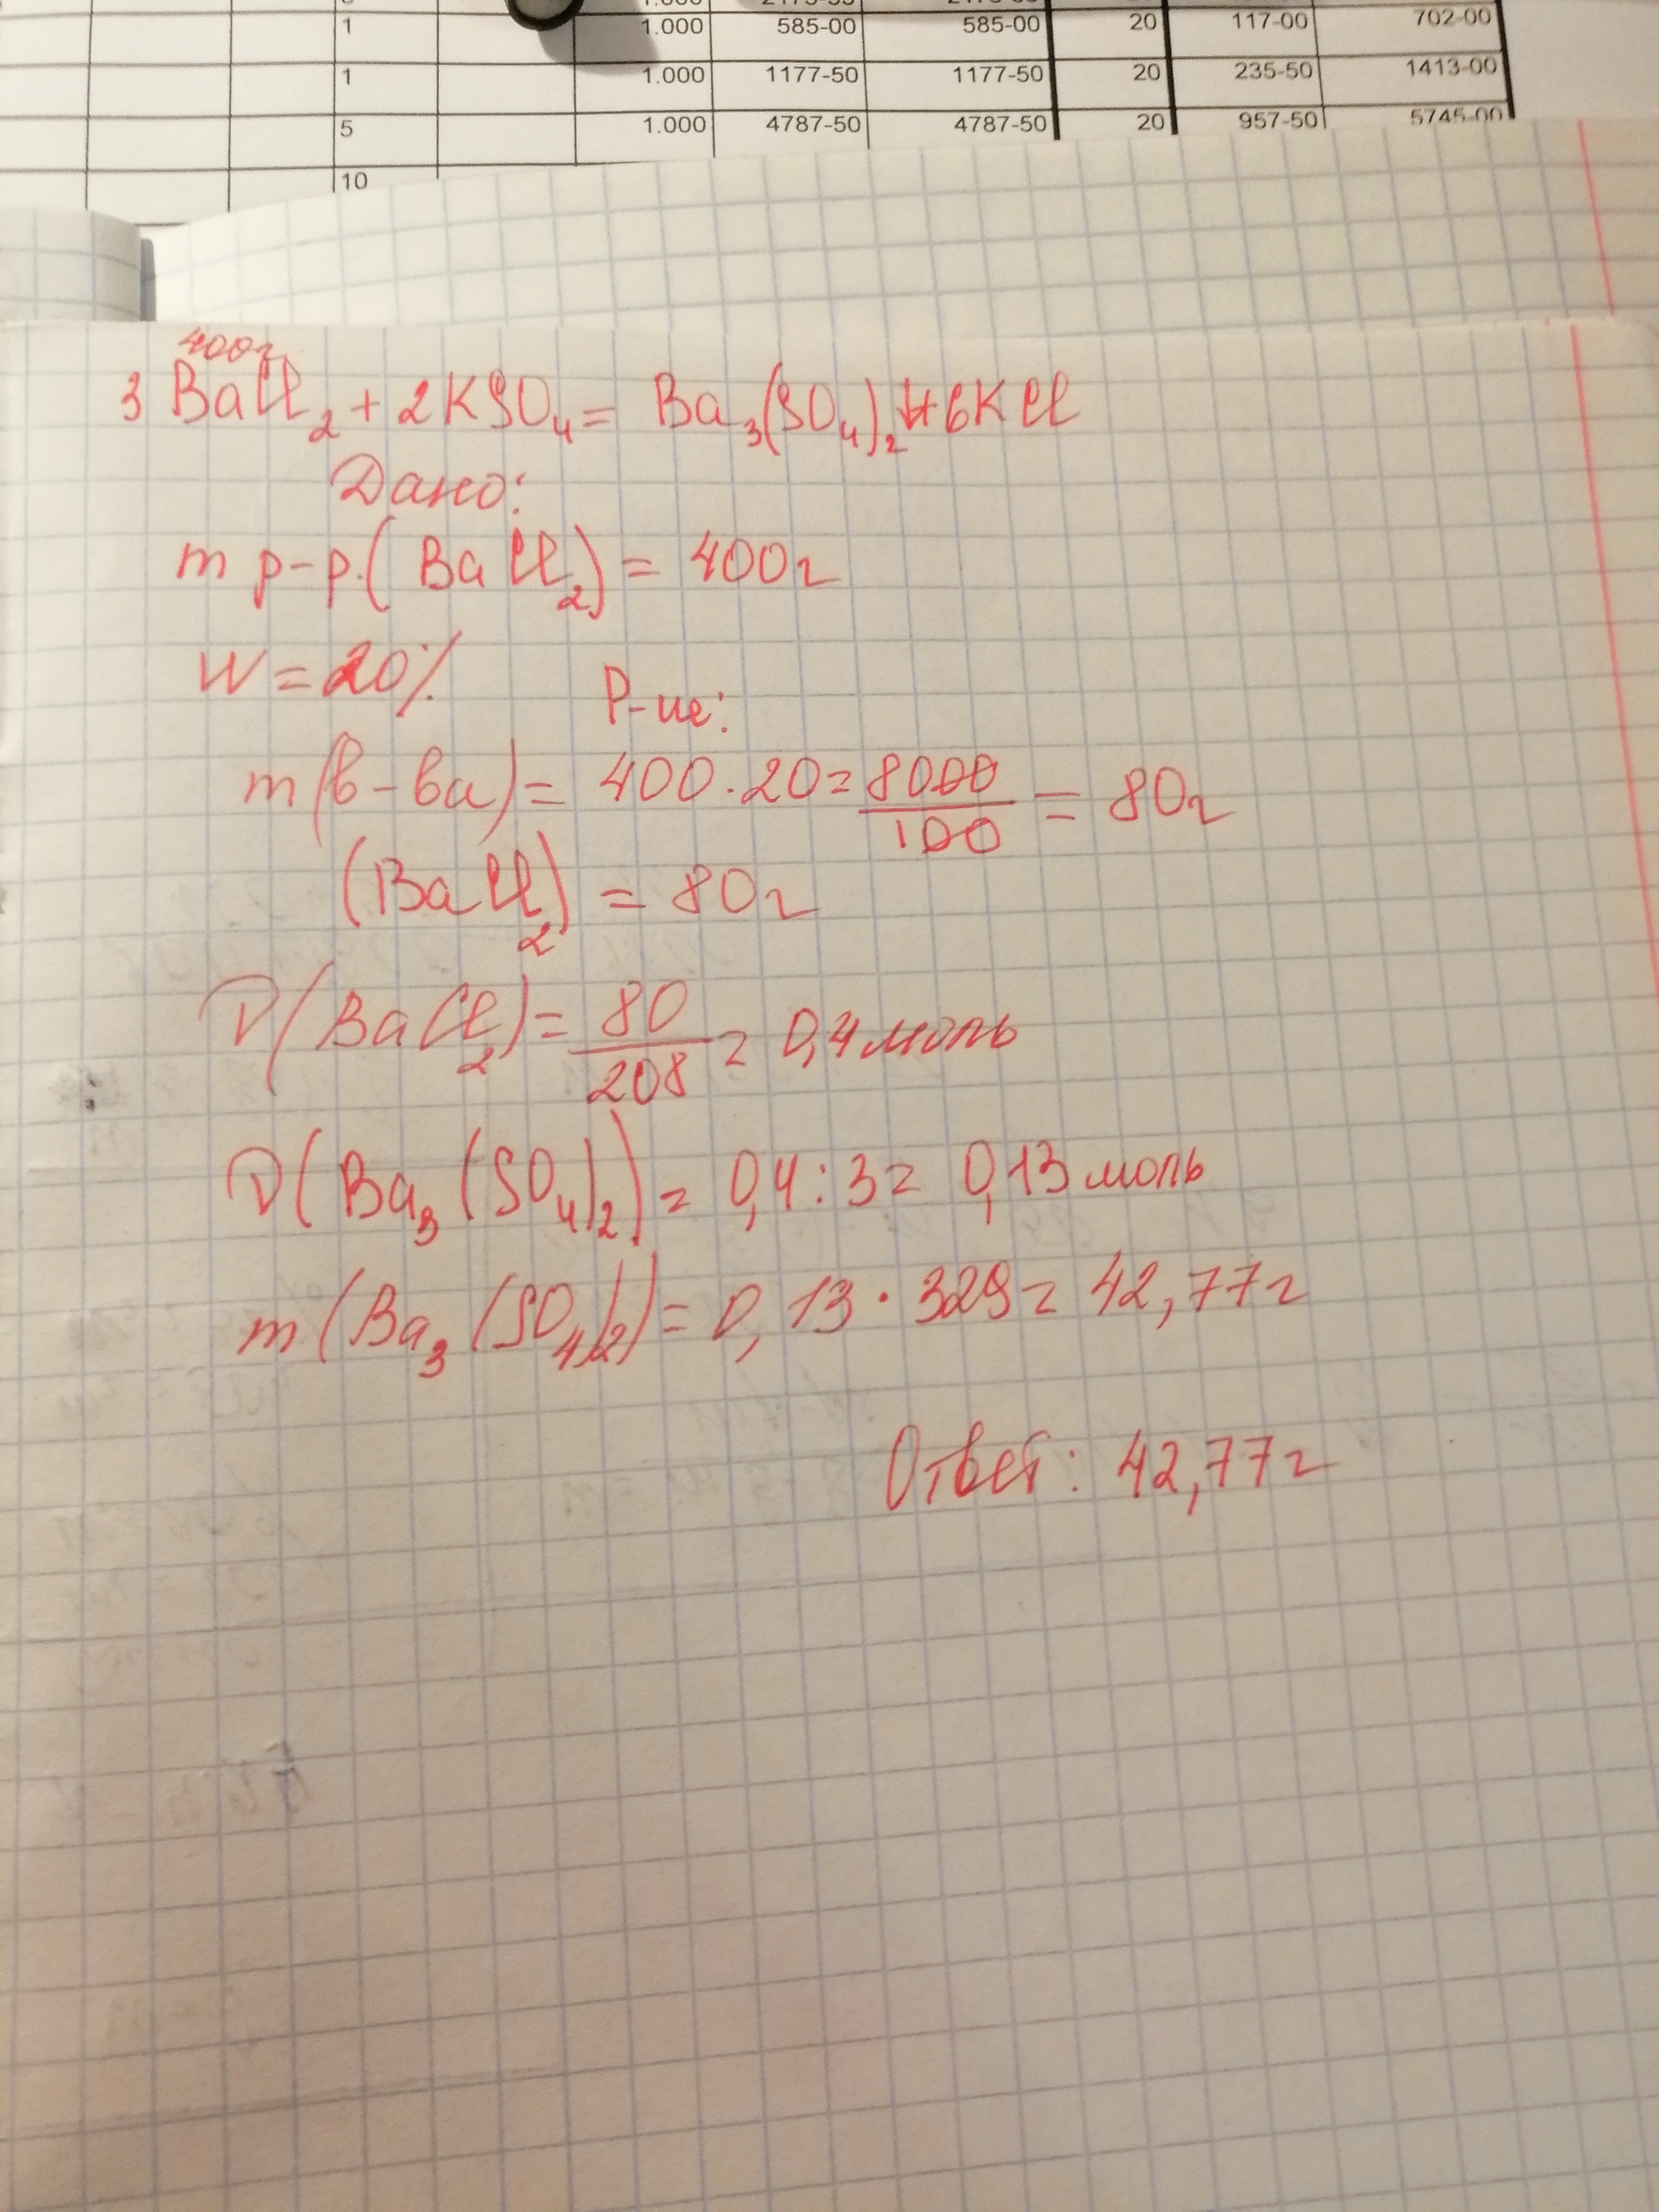 1 1.000 585-00 585-00 20 117-00 702-00
1 1.000 1177-50 1177-50 20 235-50 1413-00
5 1.000 4787-50 4787-50 20 957-50 5745-00
10
400г
3 BaCl₂ + 2KSO₄ = Ba₃(SO₄)₂↓+6KCl
Дано:
m р-р.(BaCl₂) = 400г
W = 20%
Р-ие:
m(в-ва) = 400·20 = 8000/100 = 80г
(BaCl₂) = 80г
ν(BaCl₂) = 80/208 = 0,4 моль
ν(Ba₃(SO₄)₂) = 0,4 : 3 = 0,13 моль
m(Ba₃(SO₄)₂) = 0,13 · 329 = 42,77г
Ответ: 42,77г